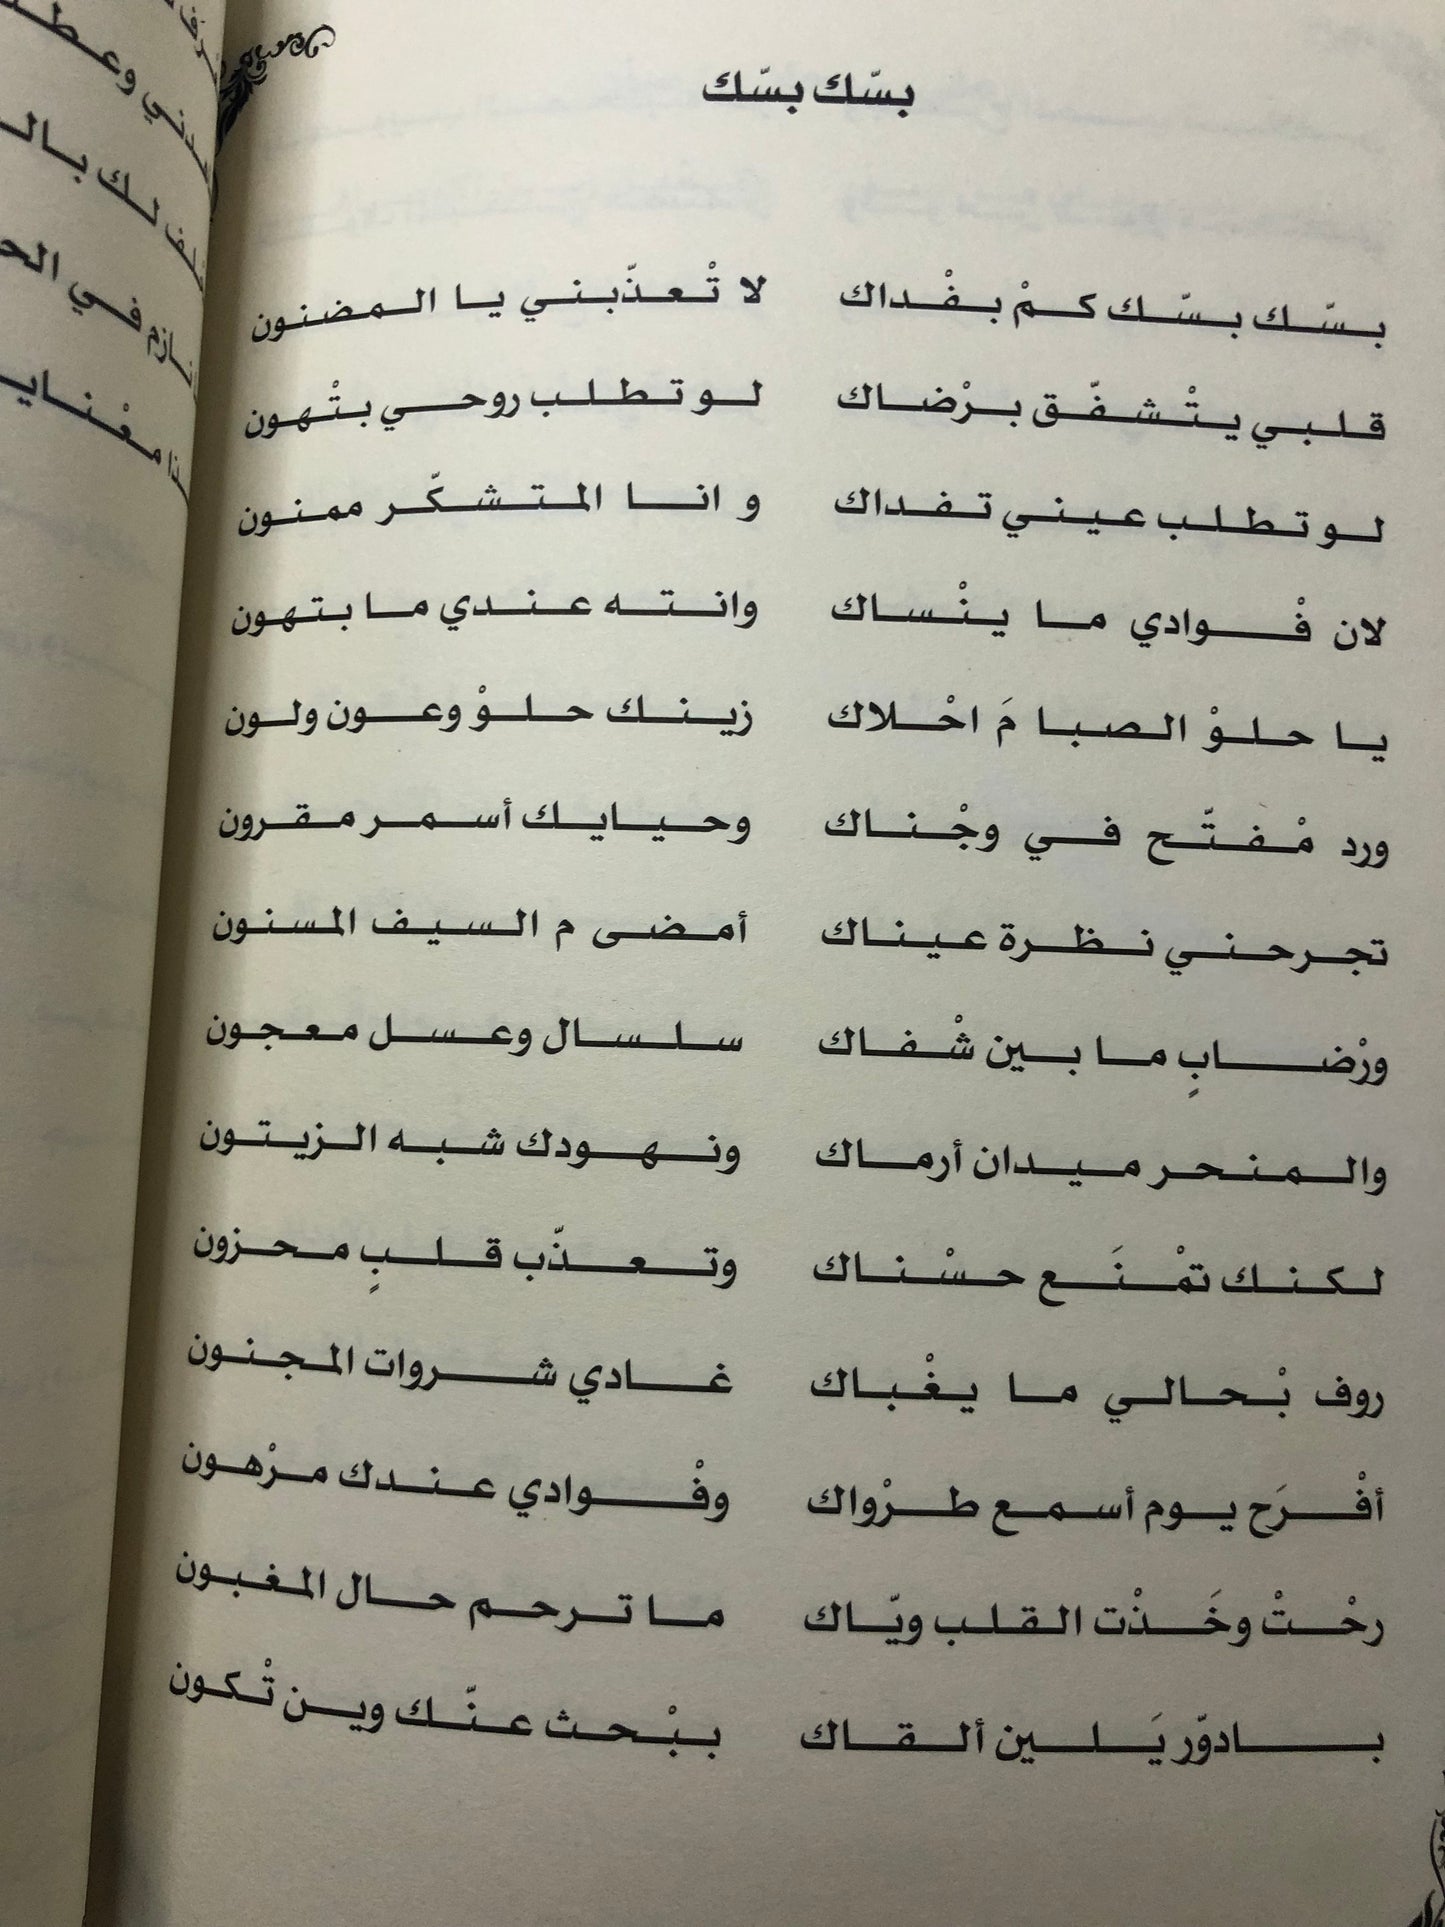 بسّك بسّك
بسّك بسّك كمْ بفْداك لا تْعذّبني يا المضنون
قلبي يتْشفّق برْضاك لو تطلب روحي بتْهون
لو تطلب عيني تفداك و انا المتشكّر ممنون
لان فْوادي ما ينْساك وانته عندي ما بتهون
يا حلوْ الصبا مَ احْلاك زينك حلوْ وعون ولون
ورد مْفتّح في وجْناك وحيايك أسمر مقرون
تجرحني نظرة عيناك أمضى م السيف المسنون
ورْضابٍ ما بين شْفاك سلسال وعسل معجون
والمنحر ميدان أرماك ونهودك شبه الزيتون
لكنك تمْنَع حسْناك وتعذّب قلبٍ محزون
روف بْحالي ما يغْباك غادي شروات المجنون
أفْرَح يوم أسمع طرْواك وفْوادي عندك مرْهون
رحْتْ وخَذْت القلب ويّاك ما ترحم حال المغبون
بادوّر يَلين ألقاك ببْحث عنّك وين تْكون